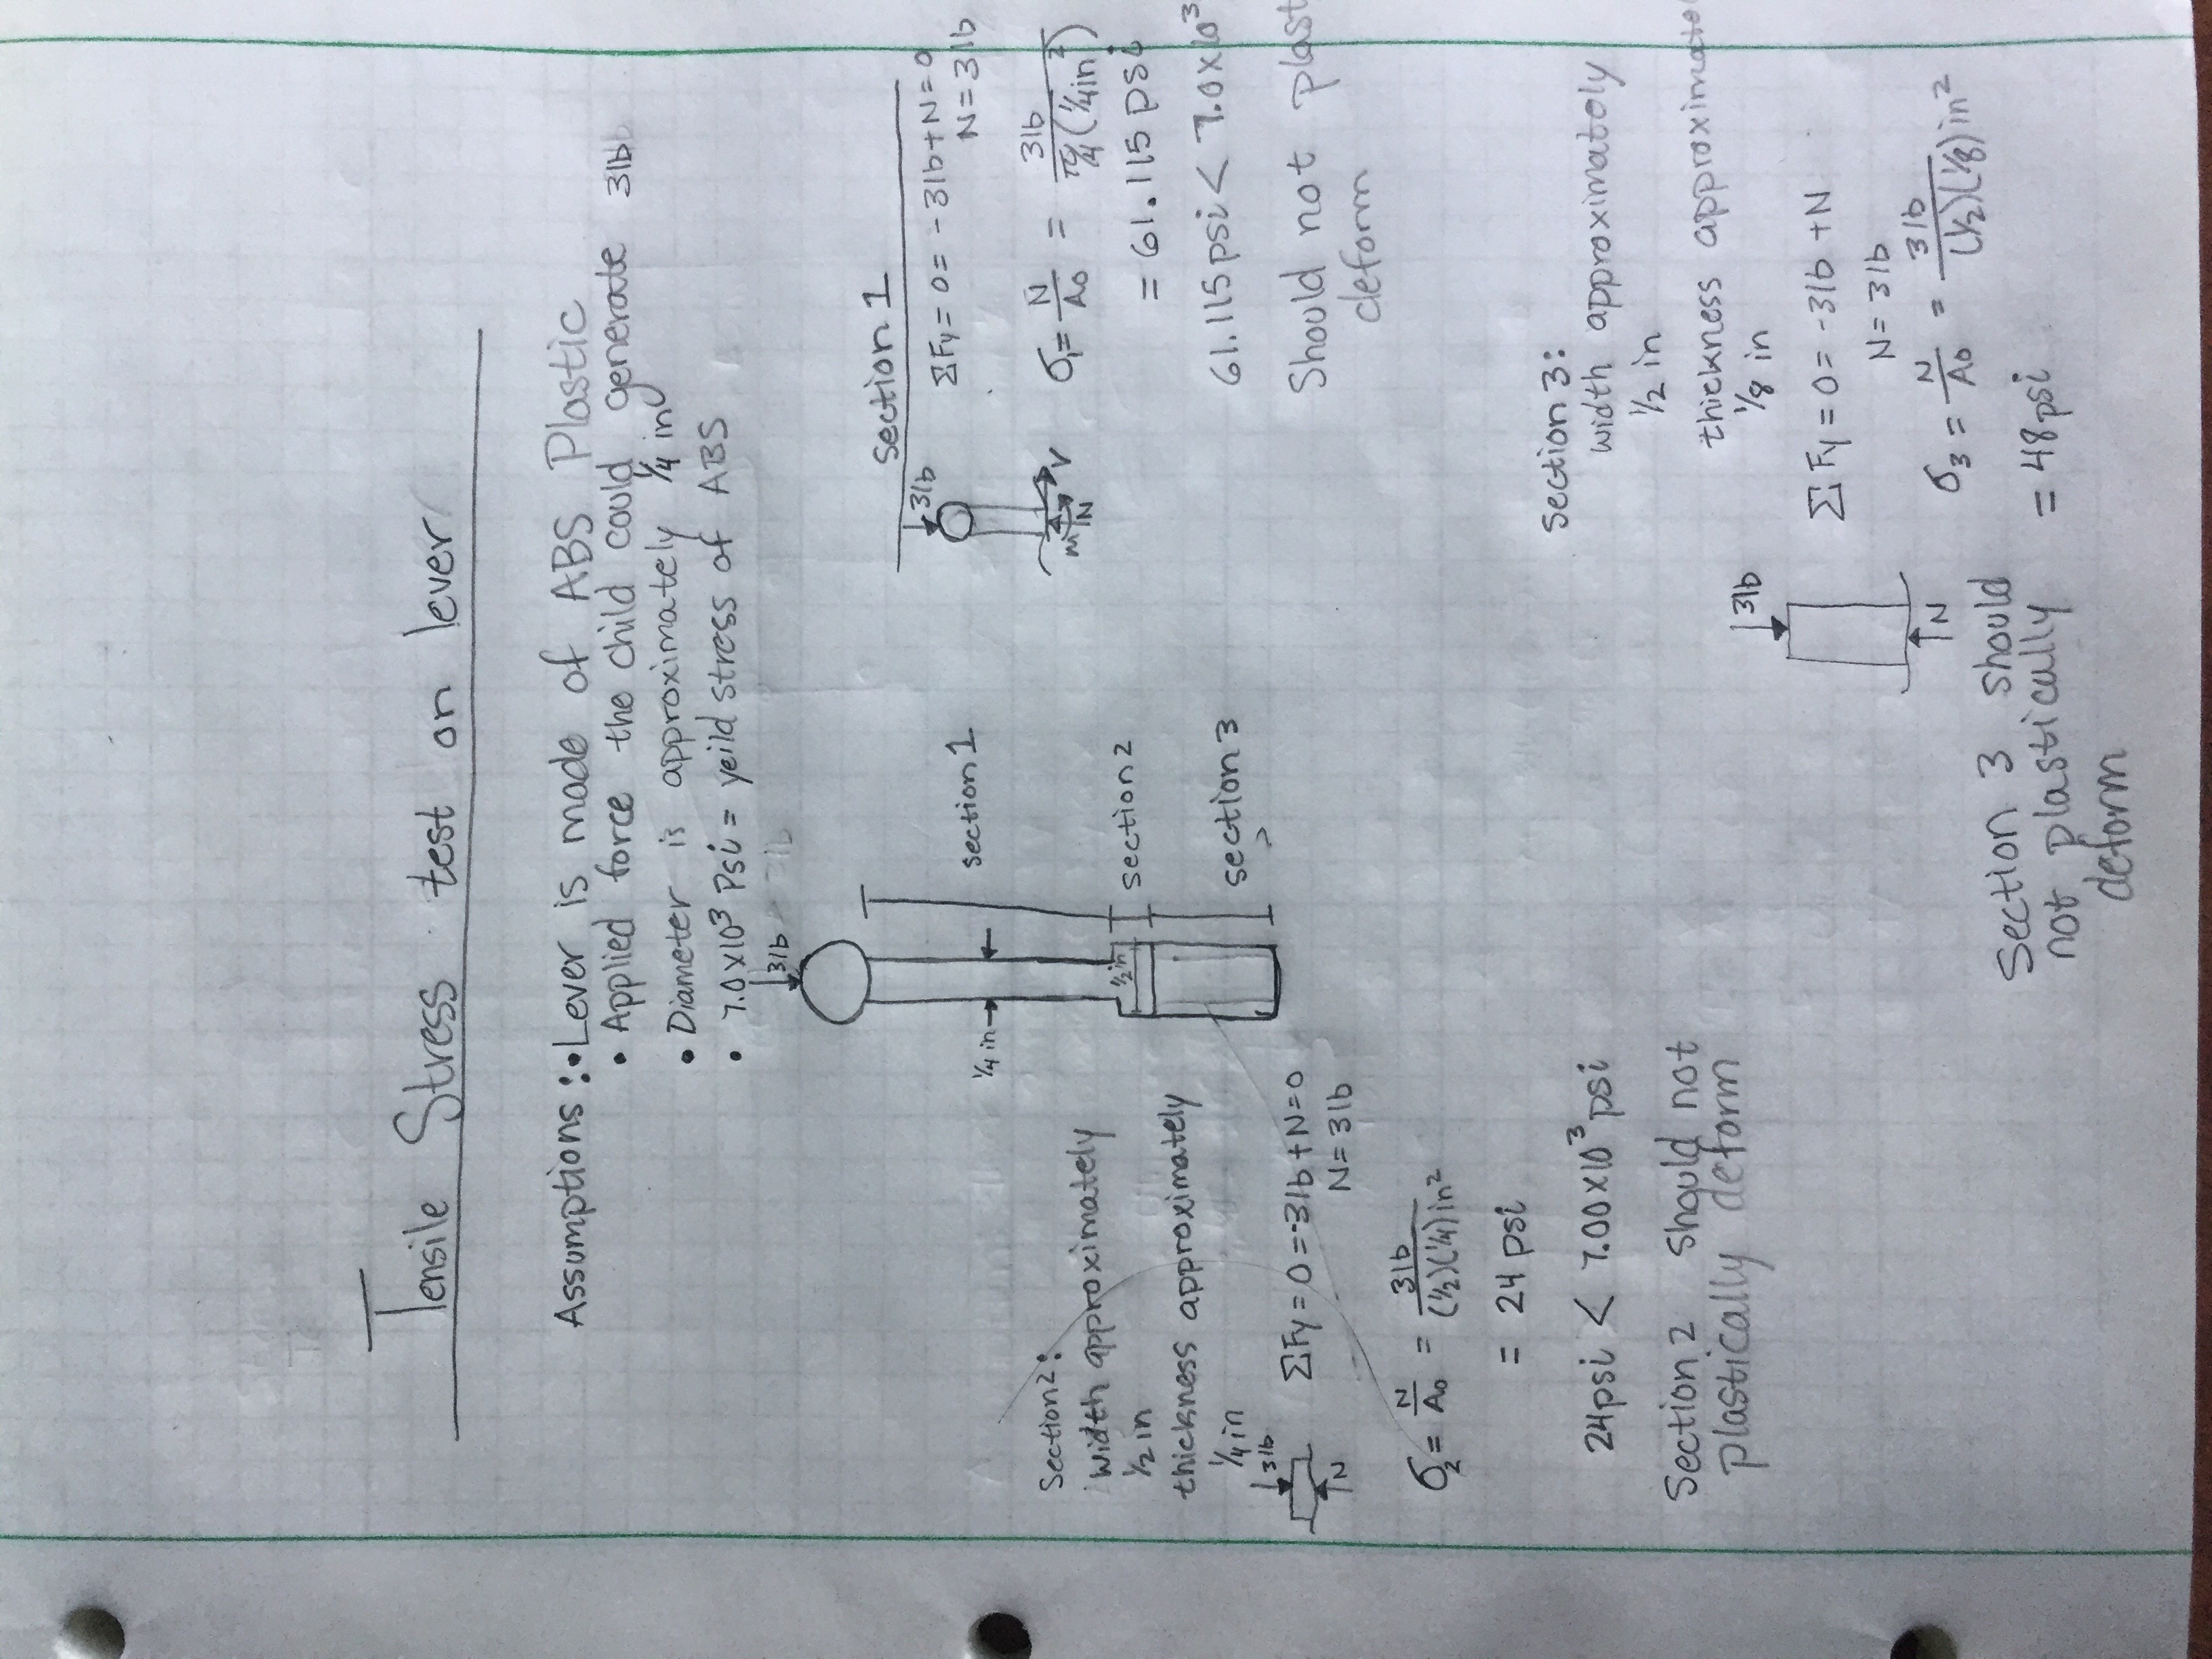 Tensile Stress test on lever
Assumptions: • Lever is made of ABS Plastic
• Applied force the child could generate 3lb
• Diameter is approximately 1/4 in
• 7.0x10³ Psi = yeild stress of ABS
3lb
1/4 in
section 1
1/2 in
section 2
section 3
Section 1
3lb
ΣFy = 0 = -3lb+N = 0
N = 3lb
M N V
σ₁ = N/A₀ = 3lb/(π/4(1/4in)²)
= 61.115 psi
61.115psi < 7.0x10³
Should not plast
deform
Section2:
width approximately
1/2 in
thickness approximately
1/4 in
3lb
N
ΣFy = 0 = -3lb+N = 0
N = 3lb
σ₂ = N/A₀ = 3lb/((1/2)(1/4)in²)
= 24 psi
24psi < 7.00x10³ psi
Section 2 should not
plastically deform
Section 3:
width approximately
1/2 in
thickness approximate
1/8 in
3lb
N
ΣFy = 0 = -3lb +N
N = 3lb
σ₃ = N/A₀ = 3lb/((1/2)(1/8)in²)
= 48psi
Section 3 should
not plastically
deform